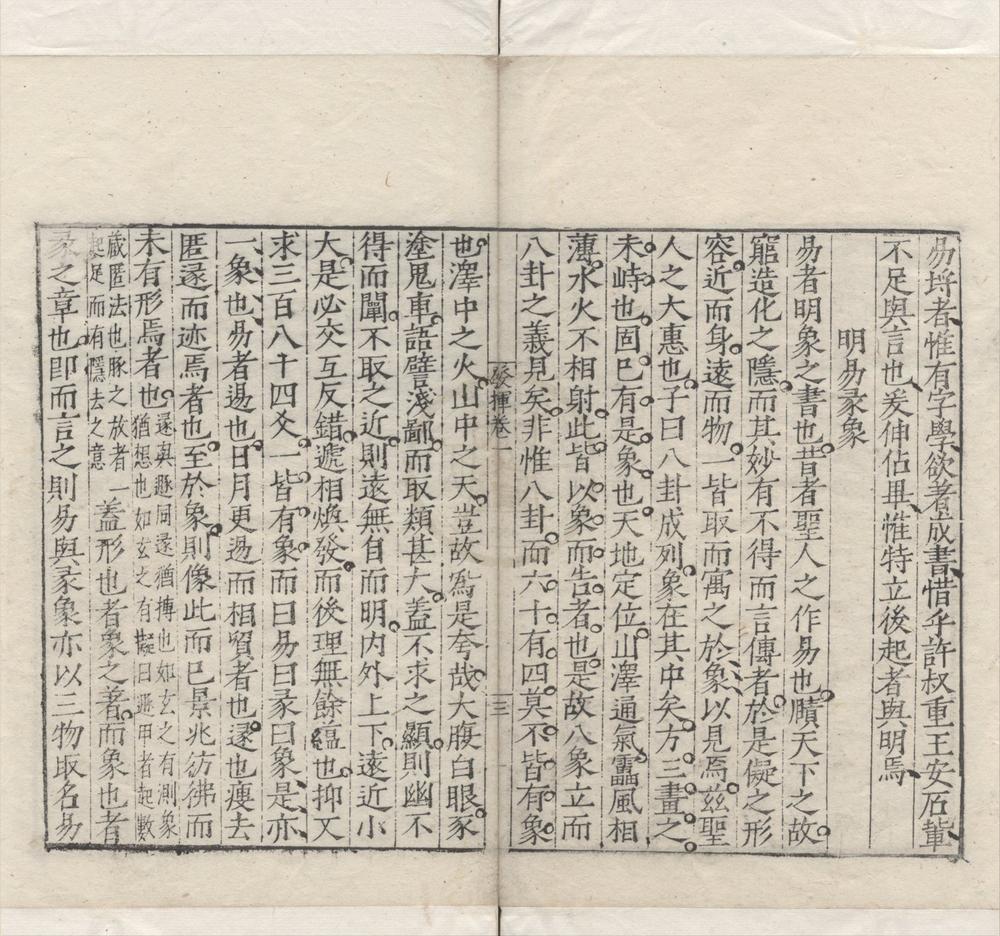 易埒者惟有字學欲著成書惜乎許叔重王安石輩
不足與言也爰伸佔畢惟特立後起者與明焉
明易彖象
易者明象之書也昔者聖人之作易也賾天下之故
窮造化之隱而其妙有不得而言傳者於是儗之形
容近而身遠而物一皆取而寓之於象以見焉茲聖
人之大惠也子曰八卦成列象在其中矣方三畫之
未峙也固巳有是象也天地定位山澤通氣靁風相
薄水火不相射此皆以象而告者也是故八象立而
八卦之義見矣非惟八卦而六十有四莫不皆有象
發揮卷一 三
也澤中之火山中之天豈故爲是夸哉大腹白眼豕
塗鬼車語譬淺鄙而取類甚大蓋不求之顯則幽不
得而闡不取之近則遠無自而明内外上下遠近小
大是必交互反錯遞相煥發而後理無餘緼也抑又
求三百八十四爻一皆有象而曰易曰彖曰象是亦
一象也易者昜也日月更昜而相貿者也彖也瘦去
匿遂而迹焉者也至於象則像此而巳景兆彷彿而
未有形焉者也遂與遯同遂猶摶也如玄之有測象猶想也如玄之有擬曰遯甲者起數
藏匿法也豚之放者一起足而有隱去之意蓋形也者象之著而象也者
彖之章也卽而言之則易與彖象亦以三物取名易